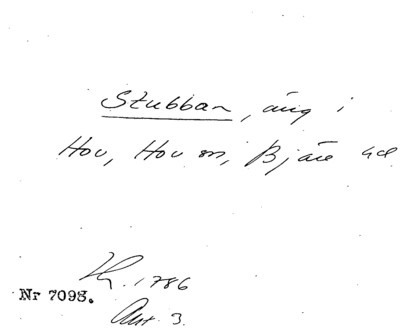 Stubban, äng i
Hov, Hov sn, Bjäre hd
1786
Nr 7098.
Akt 3.